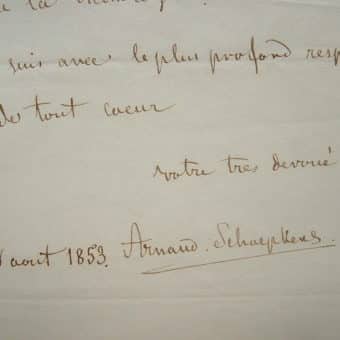 suis avec le plus profond resp
de tout coeur
votre tres devoué
aout 1853. Arnaud. Schaepkens.